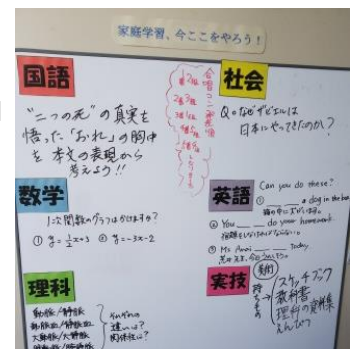 家庭学習、今ここをやろう！
国語
"二つの死"の真実を
悟った「おれ」の胸中
を 本文の表現から
考えよう!!
社会
Q。なぜザビエルは
日本にやってきたのか？
数学
1次関数のグラフはかけますか？
① y=1/2x+3 ② y=-3x-2
英語
Can you do these?
① ___ ___ a dog in the box
箱の中に犬がいます。
② You ___ ___ do your homework.
宿題をしなければならない。
③ Ms. Arai ___ ___ today.
理科
動脈/静脈
動脈血/静脈血
大動脈/大静脈
肺動脈/肺静脈
それぞれの
違いは？
関係性は？
実技
美術
持ちもの
スケッチブック
教科書
理科の資料集
えんぴつ